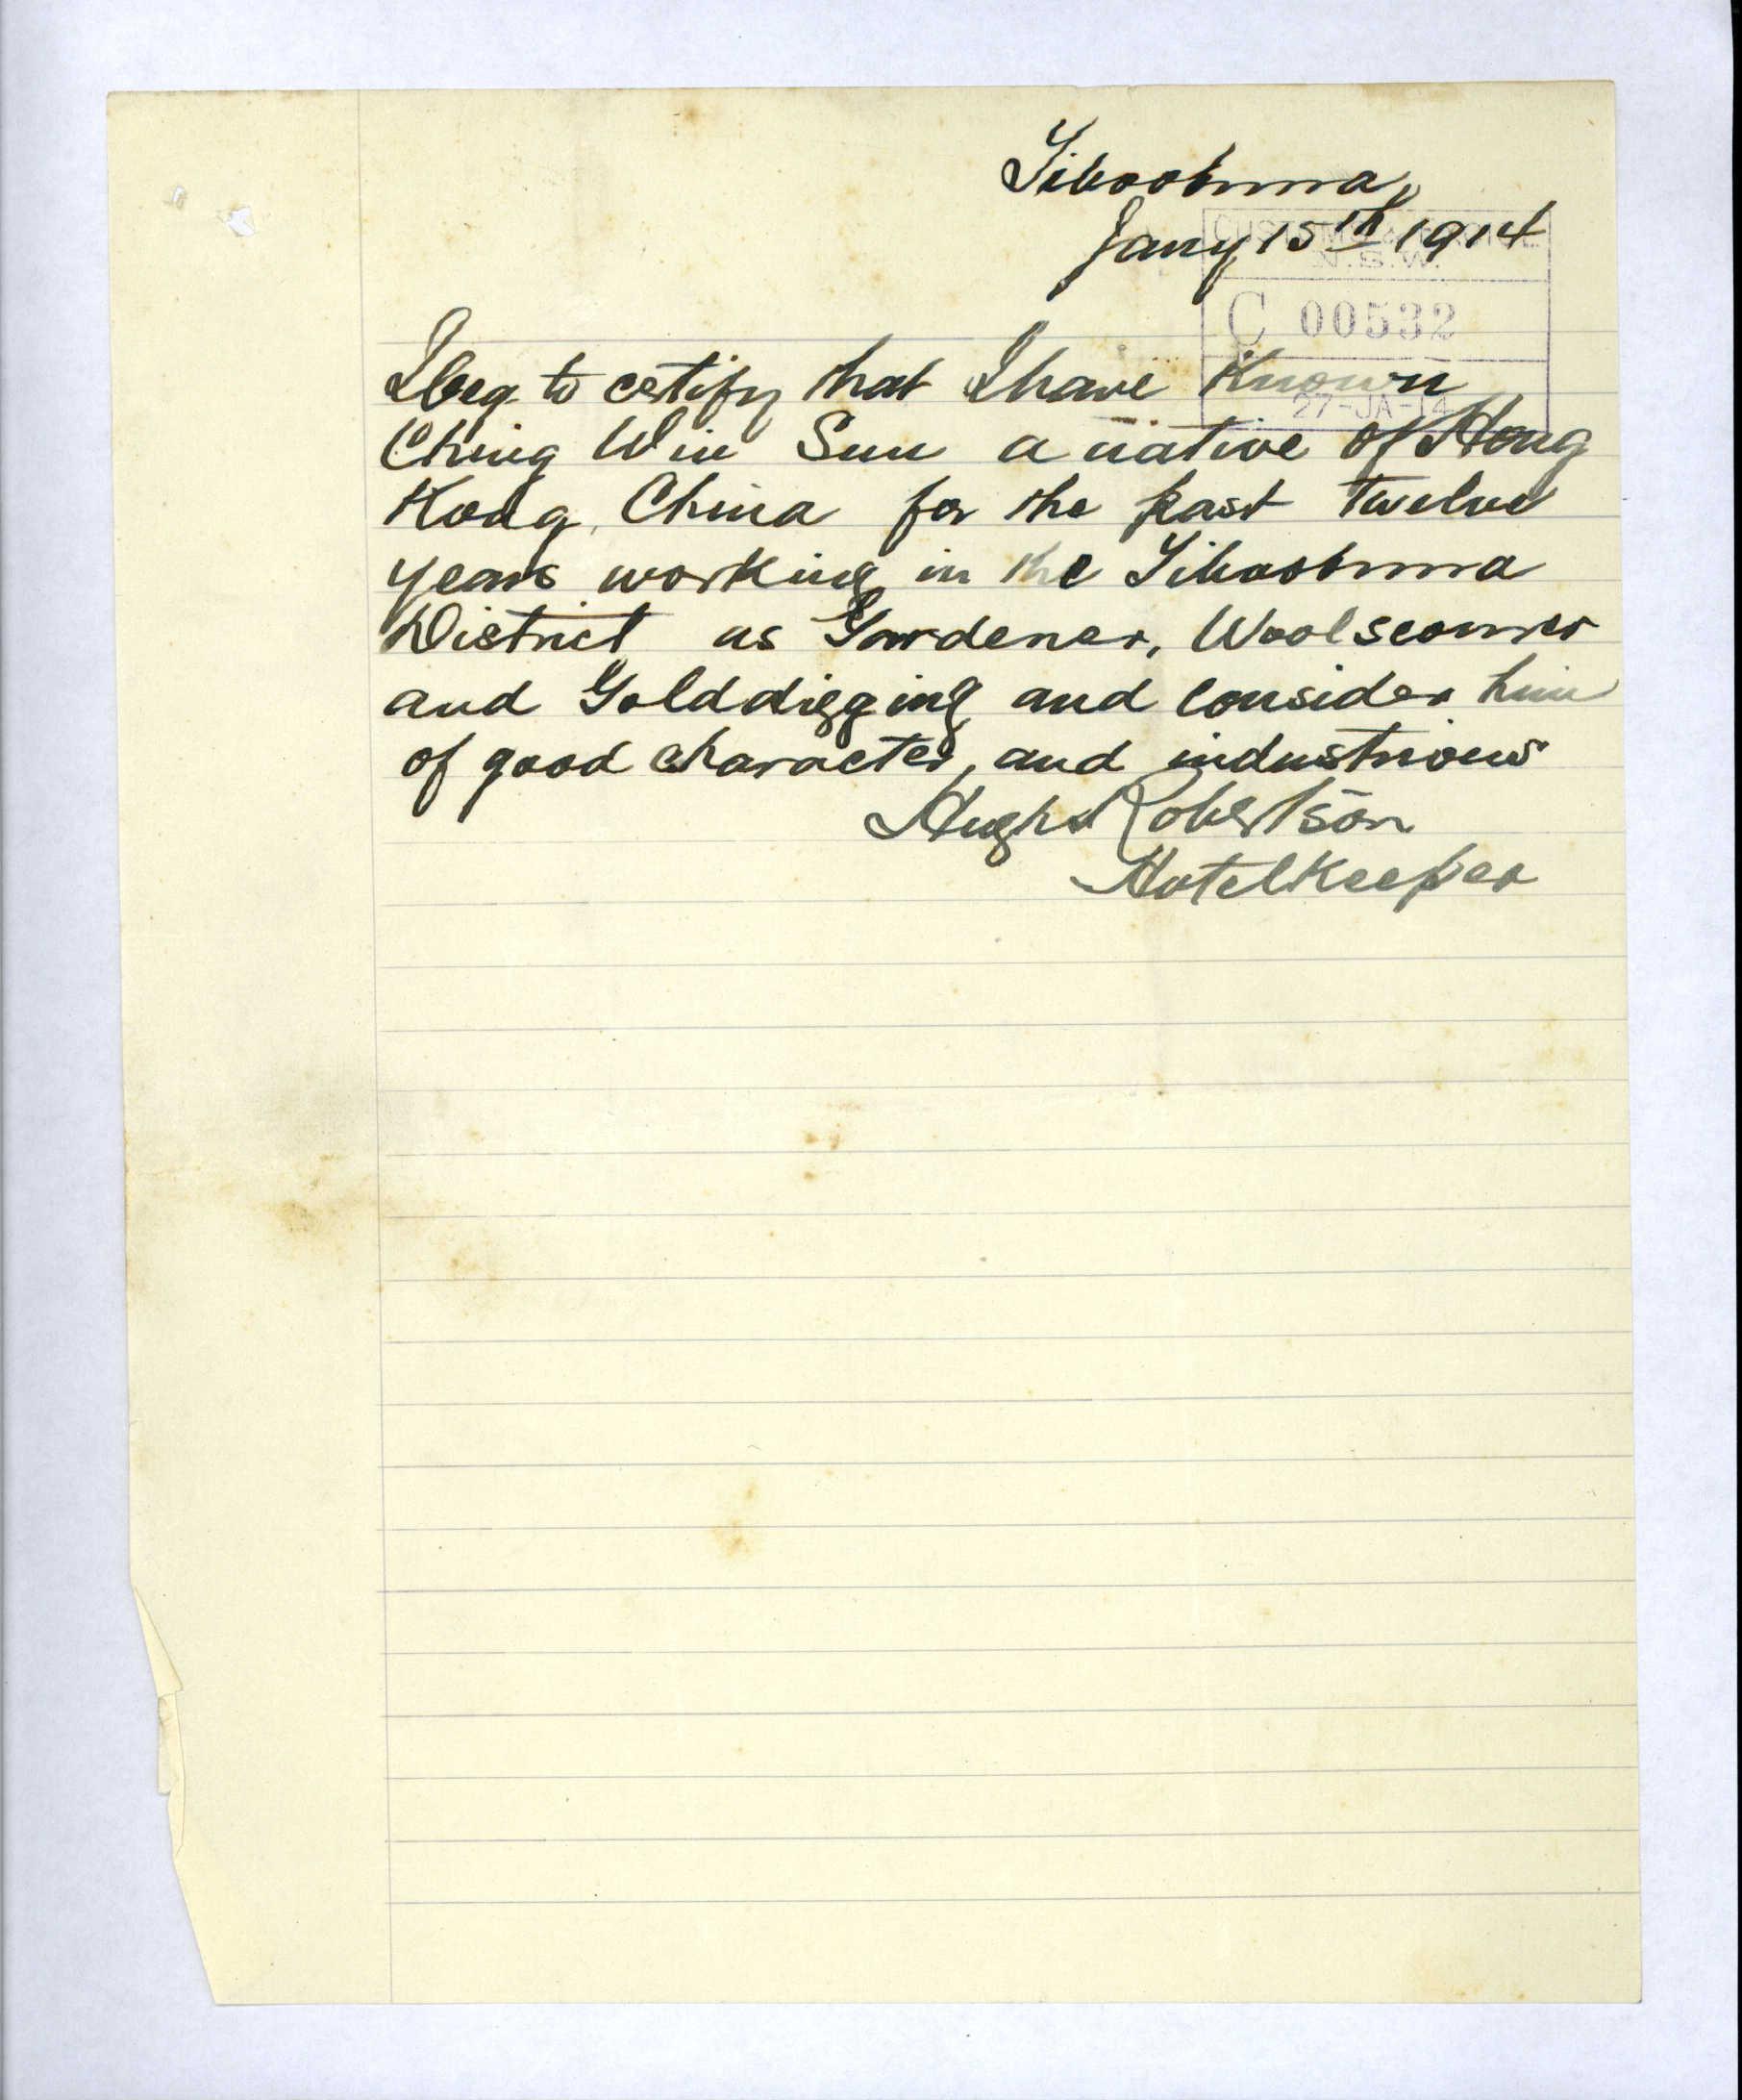 Tibooburra,
Jany 15th 1914
CUSTOMS & EXCISE
N.S.W.
C 00532
27-JA-14
I beg to certify that I have Known
Ching Win Sun a native of Hong
Kong, China for the past twelve
years working in the Tibooburra
District as Gardener, Woolscourer
and Golddigging and consider him
of good character, and industrious
Hugh Robertson
Hotelkeeper